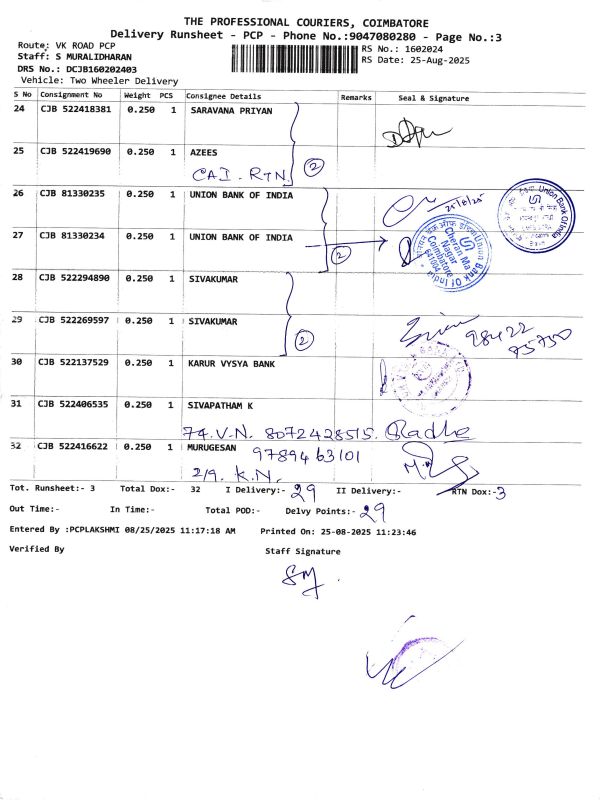 THE PROFESSIONAL COURIERS, COIMBATORE
Delivery Runsheet - PCP - Phone No.:9047080280 - Page No.:3
Route: VK ROAD PCP RS No.: 1602024
Staff: S MURALIDHARAN RS Date: 25-Aug-2025
DRS No.: DCJB160202403
Vehicle: Two Wheeler Delivery
S No Consignment No Weight PCS Consignee Details Remarks Seal & Signature
24 CJB 522418381 0.250 1 SARAVANA PRIYAN
25 CJB 522419690 0.250 1 AZEES
CAI. RTN 2
26 CJB 81330235 0.250 1 UNION BANK OF INDIA 25/8/25
27 CJB 81330234 0.250 1 UNION BANK OF INDIA
2
Union Bank Of India
Cheran Ma Nagar
Coimbatore
641004
Union Bank Of India
28 CJB 522294890 0.250 1 SIVAKUMAR
29 CJB 522269597 0.250 1 SIVAKUMAR
2 98422
75750
30 CJB 522137529 0.250 1 KARUR VYSYA BANK
31 CJB 522406535 0.250 1 SIVAPATHAM K
74. V.N. 8072428515. Radhe
32 CJB 522416622 0.250 1 MURUGESAN 9789463101
2/9. K.N.
Tot. Runsheet:- 3 Total Dox:- 32 I Delivery:- 29 II Delivery:- RTN Dox:-3
Out Time:- In Time:- Total POD:- Delvy Points:- 29
Entered By :PCPLAKSHMI 08/25/2025 11:17:18 AM Printed On: 25-08-2025 11:23:46
Verified By Staff Signature